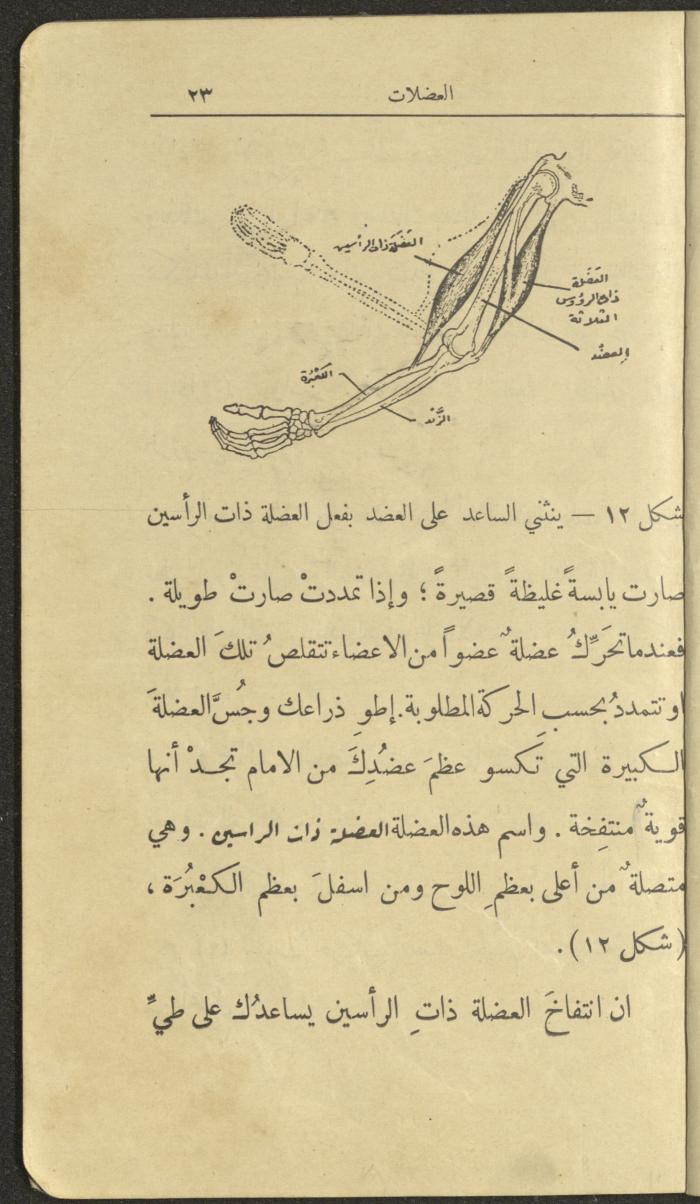 العضلات ٢٣
العَضَلَة ذات الرأسين
العَضَلة
ذات الرؤوس
الثلاثة
العضُد
الكُعْبُرَة
الزَّنْد
شكل ١٢ — ينثني الساعد على العضد بفعل العضلة ذات الرأسين
صارت يابسةً غليظةً قصيرةً ؛ وإذا تمددتْ صارتْ طويلة .
فعندما تحَرِّكُ عضلةٌ عضواً من الاعضاء تتقلصُ تلكَ العضلة
او تتمددُ بحسبِ الحركة المطلوبة. إطوِ ذراعك وجُسَّ العضلةَ
الكبيرة التي تكسو عظمَ عضُدِكَ من الامام تجدْ أنها
قويةٌ منتفِخة . واسم هذه العضلة العضلة ذات الراسين . وهي
متصلةٌ من أعلى بعظمِ اللوح ومن اسفلَ بعظم الكعْبُرَة ،
(شكل ١٢) .
ان انتفاخَ العضلة ذاتِ الرأسين يساعدُك على طيِّ